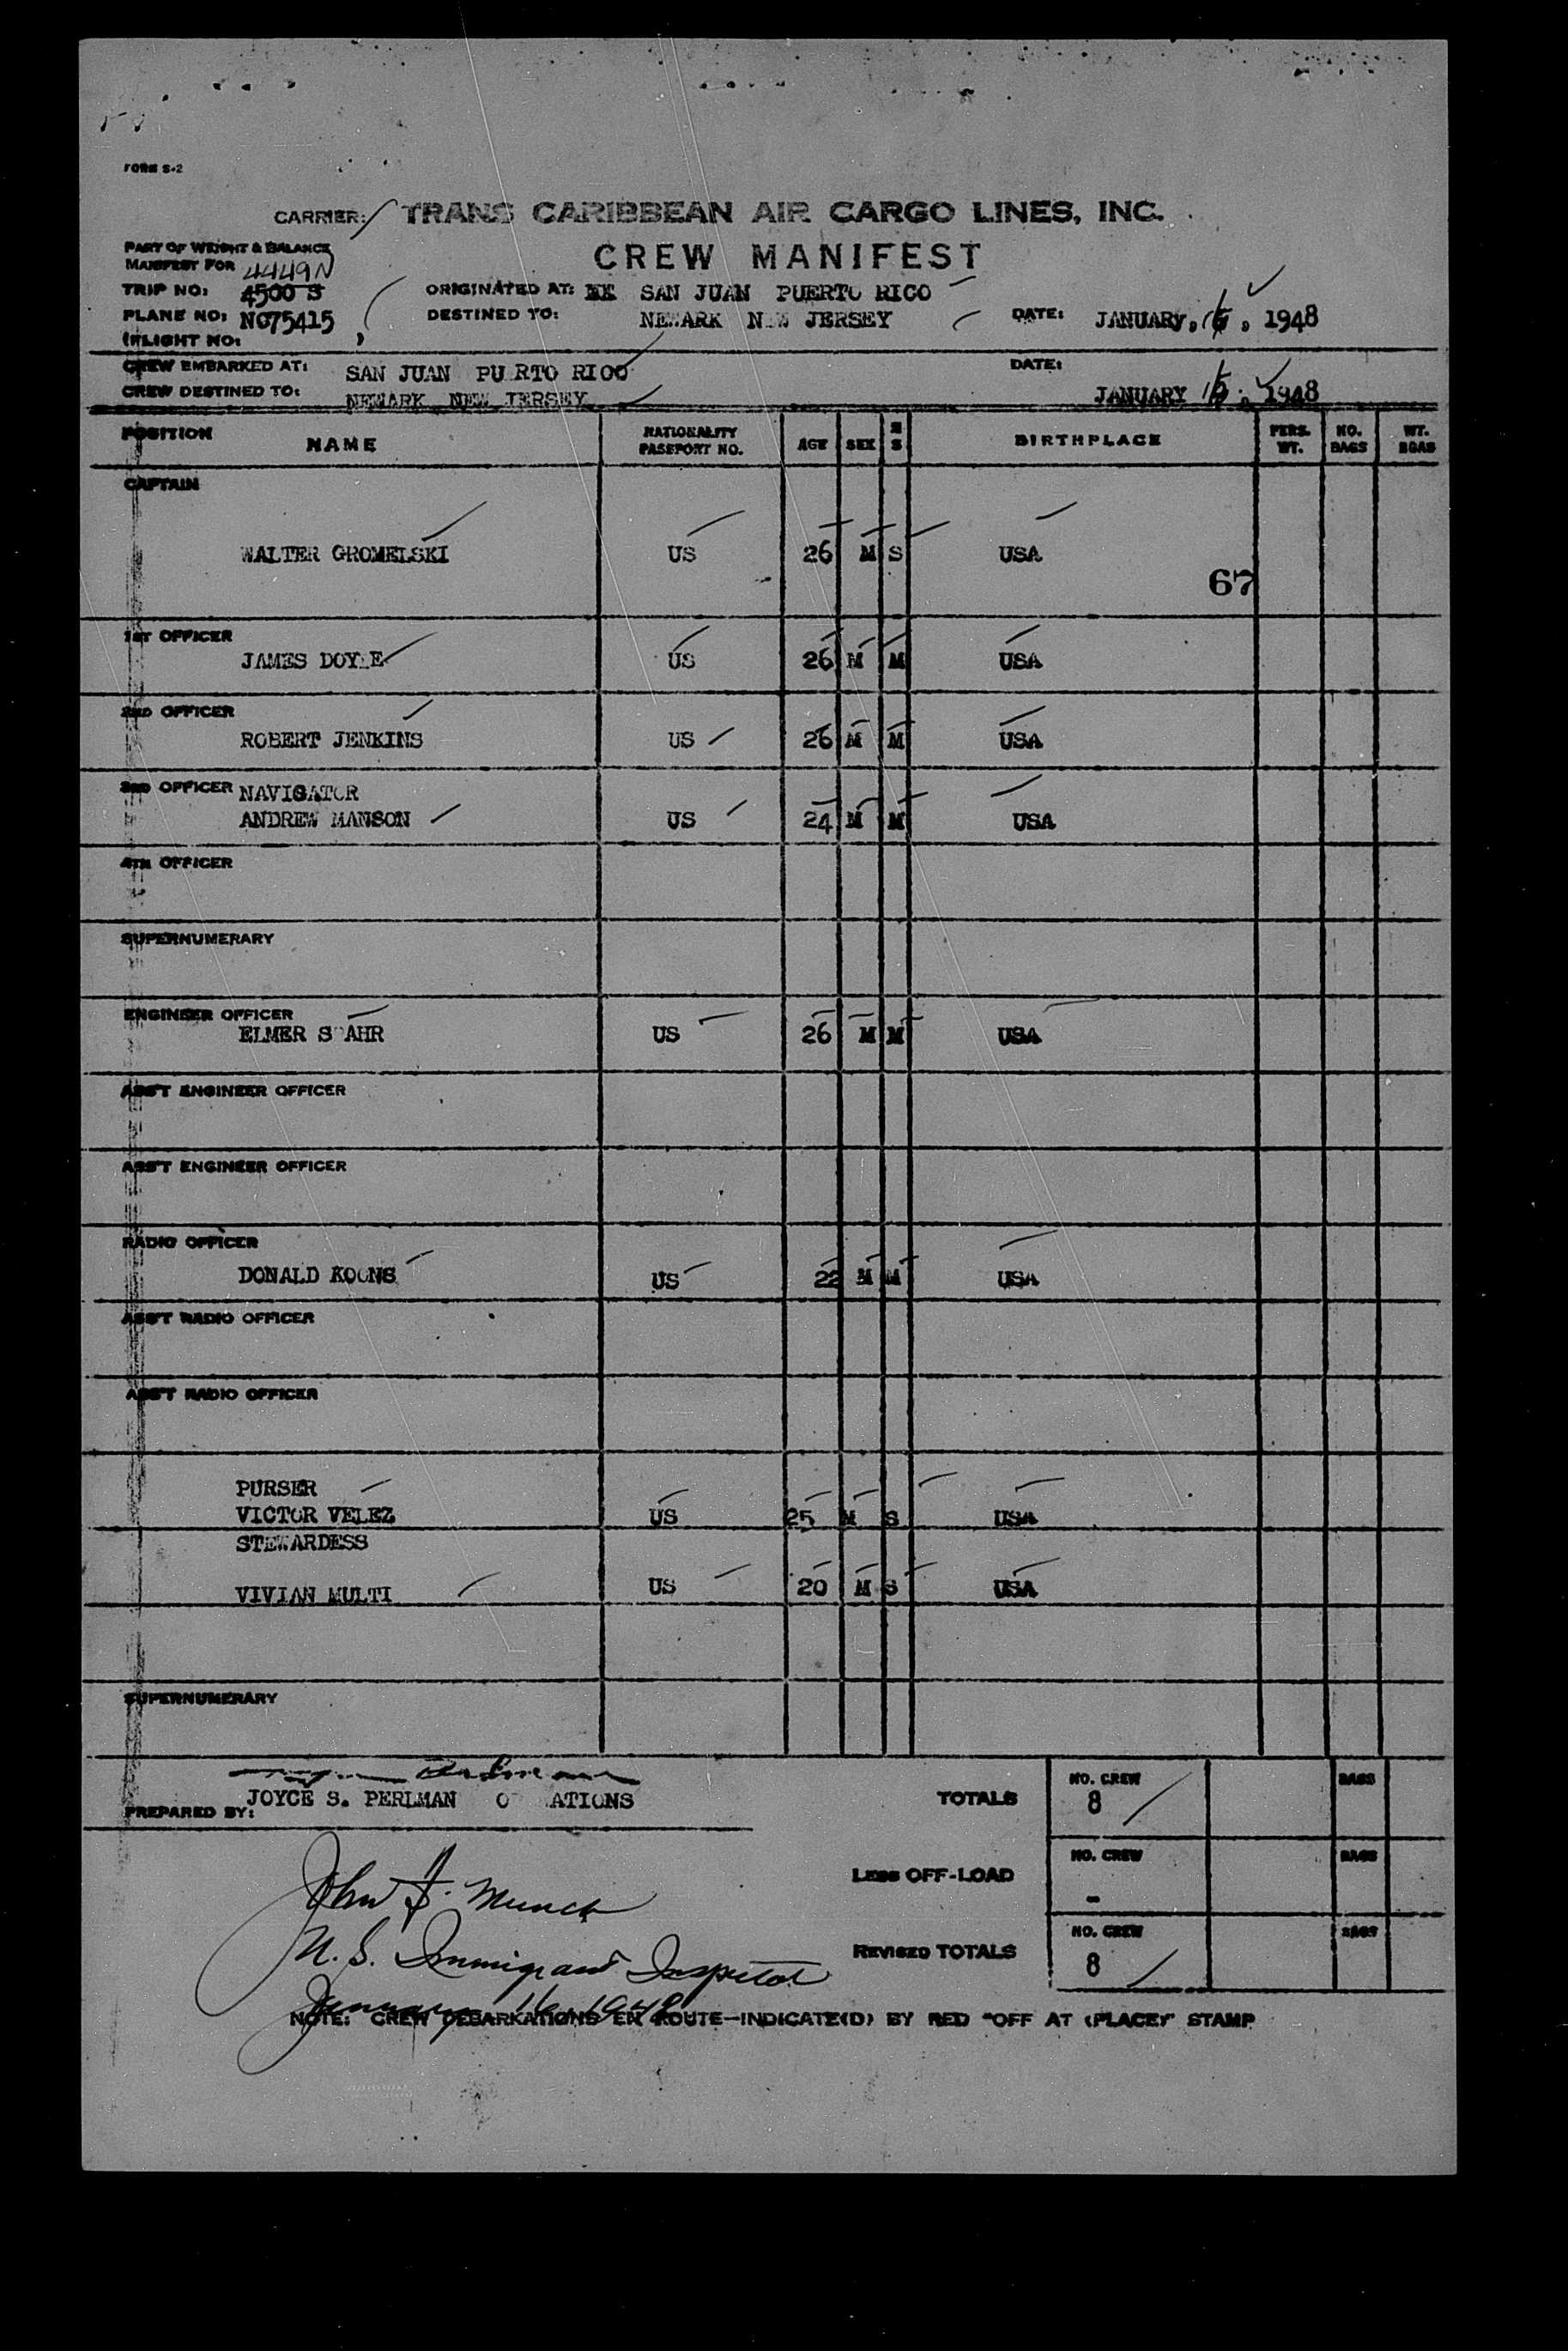 FORM S-2
CARRIER: TRANS CARIBBEAN AIR CARGO LINES, INC.
CREW MANIFEST
PART OF WEIGHT & BALANCE
MANIFEST FOR 4449N
TRIP NO: 4500 S ORIGINATED AT: SAN JUAN PUERTO RICO
PLANE NO: NC75415 DESTINED TO: NEWARK NEW JERSEY DATE: JANUARY, 1948
(FLIGHT NO: )
CREW EMBARKED AT: SAN JUAN PU RTO RICO DATE:
CREW DESTINED TO: NEWARK NEW JERSEY JANUARY 1948
POSITION NAME NATIONALITY PASSPORT NO. AGE SEX M S BIRTHPLACE PERS. WT. NO. BAGS WT. BGAS
CAPTAIN
WALTER GROMELSKI US 26 M S USA
67
1ST OFFICER
JAMES DOYLE US 26 M M USA
2ND OFFICER
ROBERT JENKINS US 26 M M USA
3RD OFFICER NAVIGATOR
ANDREW MANSON US 24 M M USA
4TH OFFICER
SUPERNUMERARY
ENGINEER OFFICER
ELMER S AHR US 26 M M USA
ASS'T ENGINEER OFFICER
ASS'T ENGINEER OFFICER
RADIO OFFICER
DONALD KOONS US 22 M M USA
ASS'T RADIO OFFICER
ASS'T RADIO OFFICER
PURSER
VICTOR VELEZ US 25 M S USA
STEWARDESS
VIVIAN MULTI US 20 M S USA
SUPERNUMERARY
JOYCE S. PERLMAN O ATIONS
PREPARED BY:
TOTALS NO. CREW 8 BAGS
LESS OFF-LOAD NO. CREW - BAGS
REVISED TOTALS NO. CREW 8 BAGS
John F. Munch
U. S. Immigrant Inspector
January 16, 1948
NOTE: CREW DEBARKATIONS EN ROUTE—INDICATE(D) BY RED "OFF AT (PLACE)" STAMP